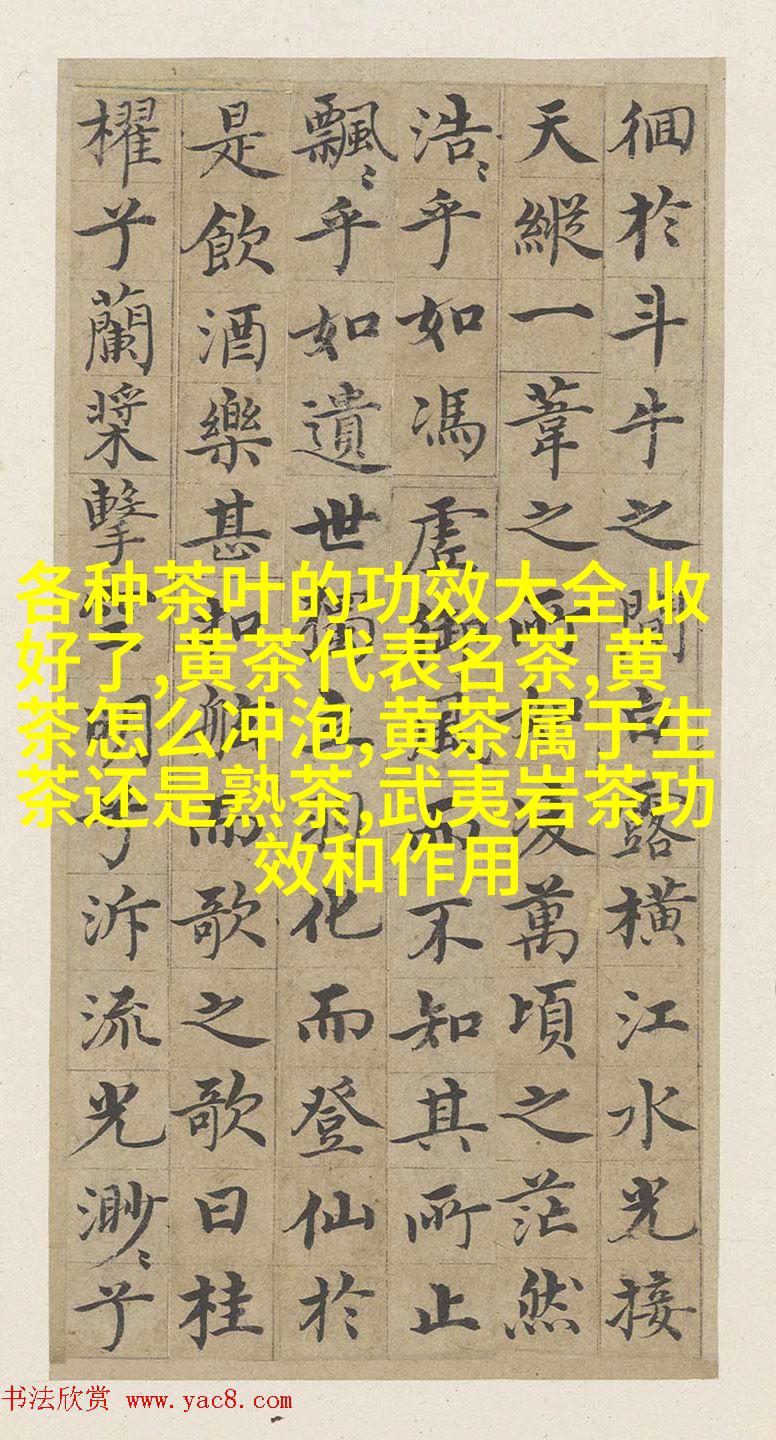 徊於斗牛之間白露橫江水光接
天縱一葦之所如凌萬頃之茫然
浩〻乎如馮虛御風而不知其所止
飄〻乎如遺世獨立羽化而登仙於
是飲酒樂甚扣舷而歌之歌曰桂
櫂兮蘭槳擊空明兮泝流光渺〻兮
各种茶叶的功效大全 收
好了,黄茶代表名茶,黄
茶怎么冲泡,黄茶属于生
茶还是熟茶,武夷岩茶功
效和作用
书法欣赏 www.yac8.com